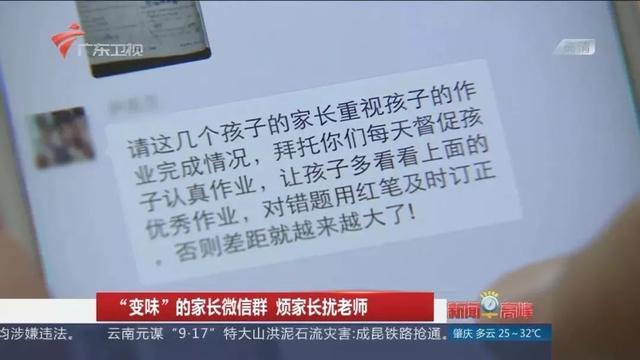 广东卫视
高清
请这几个孩子的家长重视孩子的作
业完成情况，拜托你们每天督促孩
子认真作业，让孩子多看看上面的
优秀作业，对错题用红笔及时订正
，否则差距就越来越大了!
“变味”的家长微信群 烦家长扰老师
新闻高峰
均涉嫌违法。 云南元谋“9·17”特大山洪泥石流灾害:成昆铁路抢通。
肇庆 多云 25～32℃